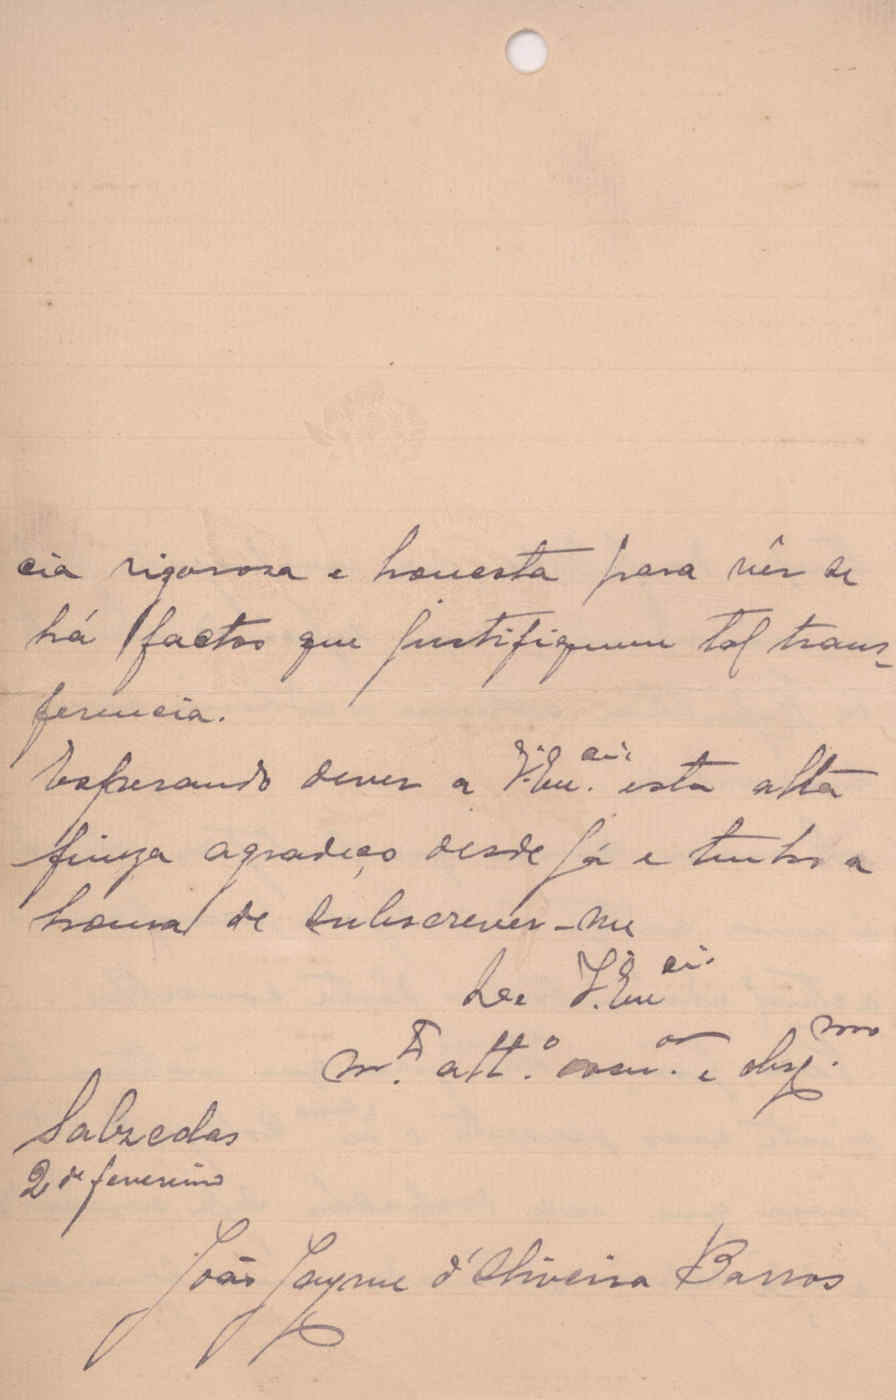 cia rigorosa e honesta para vêr se
há factos que justifiquem tal trans-
ferencia.
Esperando dever a V. Ex.cia esta alta
fineza agradeço desde já e tenho a
honra de subscrever-me
De V. Ex.cia
M.to att.o e obrg.mo
Sabzedas
2 de fevereiro
João Jayme d'Oliveira Barros